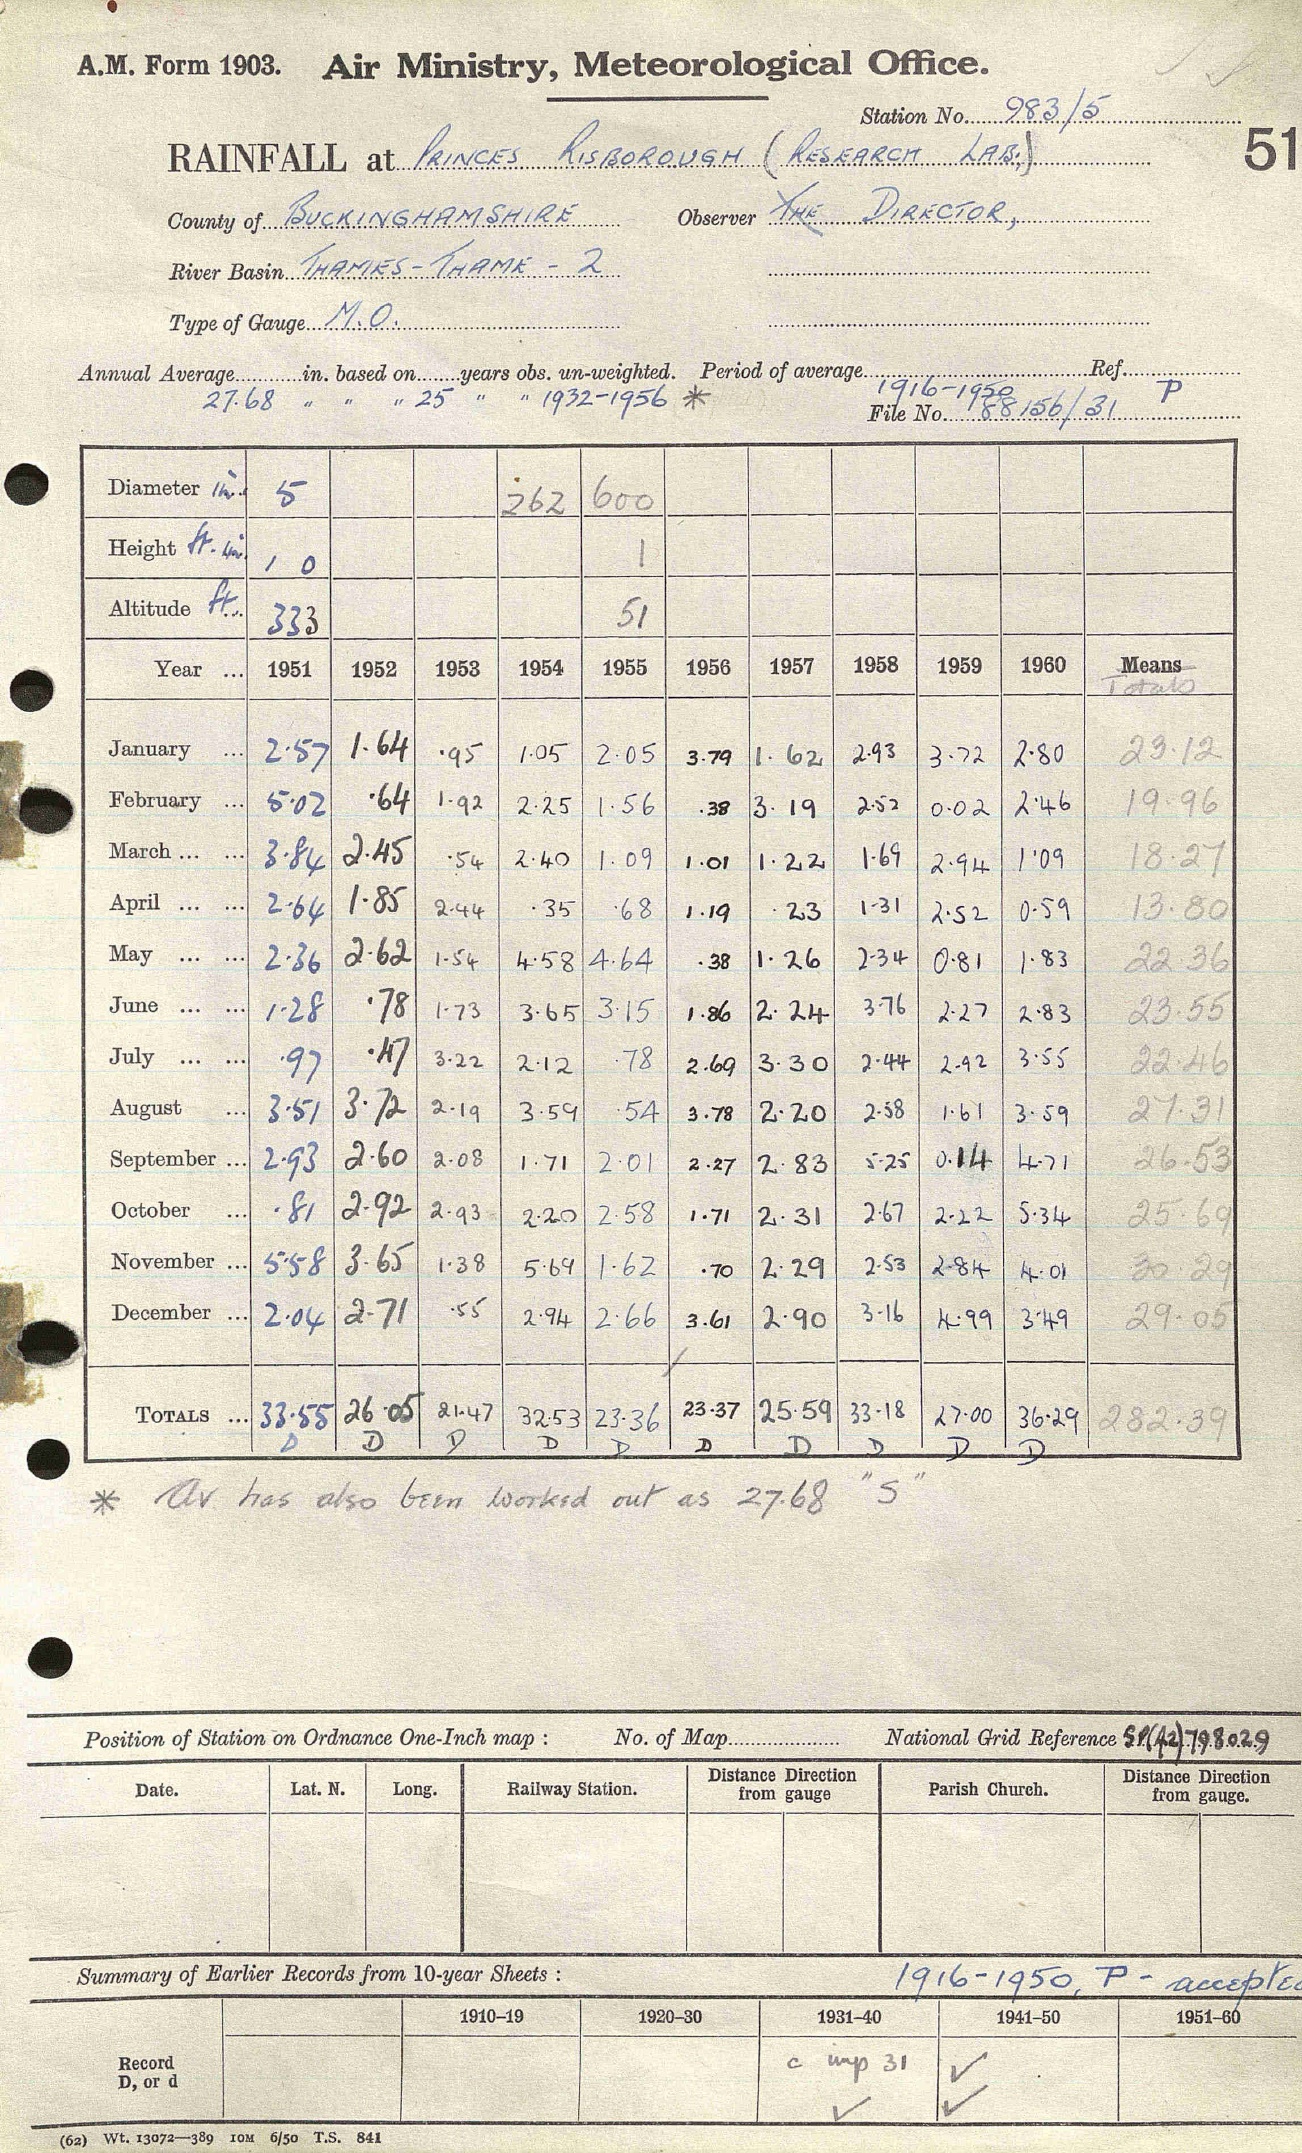 A.M. Form 1903. Air Ministry, Meteorological Office.
Station No. 983/5
51
RAINFALL at PRINCES RISBOROUGH (RESEARCH LAB.)
County of BUCKINGHAMSHIRE Observer THE DIRECTOR,
River Basin THAMES - THAME - 2
Type of Gauge M.O.
Annual Average in. based on years obs. un-weighted. Period of average 1916-1950 Ref. P
27.68 " " " 25 " " 1932-1956 *
File No. 88156/31
Diameter in. 5 262 600
Height ft. in. 1 0 1
Altitude ft. 333 51
Year ... 1951 1952 1953 1954 1955 1956 1957 1958 1959 1960 Means
Totals
January ... 2.57 1.64 .95 1.05 2.05 3.79 1.62 2.93 3.72 2.80 23.12
February ... 5.02 .64 1.92 2.25 1.56 .38 3.19 2.52 0.02 2.46 19.96
March ... ... 3.84 2.45 .54 2.40 1.09 1.01 1.22 1.69 2.94 1.09 18.27
April ... ... 2.64 1.85 2.44 .35 .68 1.19 .23 1.31 2.52 0.59 13.80
May ... ... 2.36 2.62 1.54 4.58 4.64 .38 1.26 2.34 0.81 1.83 22.36
June ... ... 1.28 .78 1.73 3.65 3.15 1.86 2.24 3.76 2.27 2.83 23.55
July ... ... .97 .47 3.22 2.12 .78 2.69 3.30 2.44 2.92 3.55 22.46
August ... 3.51 3.72 2.19 3.59 .54 3.78 2.20 2.58 1.61 3.59 27.31
September ... 2.93 2.60 2.08 1.71 2.01 2.27 2.83 5.25 0.14 4.71 26.53
October ... .81 2.92 2.93 2.20 2.58 1.71 2.31 2.67 2.22 5.34 25.69
November ... 5.58 3.65 1.38 5.69 1.62 .70 2.29 2.53 2.84 4.01 30.29
December ... 2.04 2.71 .55 2.94 2.66 3.61 2.90 3.16 4.99 3.49 29.05
TOTALS ... 33.55 26.05 21.47 32.53 23.36 23.37 25.59 33.18 27.00 36.29 282.39
D D D D D D D D D D
* Av has also been worked out as 27.68 "S"
Position of Station on Ordnance One-Inch map : No. of Map National Grid Reference SP(42)798029
Date. Lat. N. Long. Railway Station. Distance Direction from gauge Parish Church. Distance Direction from gauge.
Summary of Earlier Records from 10-year Sheets : 1916-1950, P - accepted
1910–19 1920–30 1931–40 1941–50 1951–60
Record c inp 31 ✓
D, or d ✓ ✓
(62) Wt. 13072—389 10M 6/50 T.S. 841